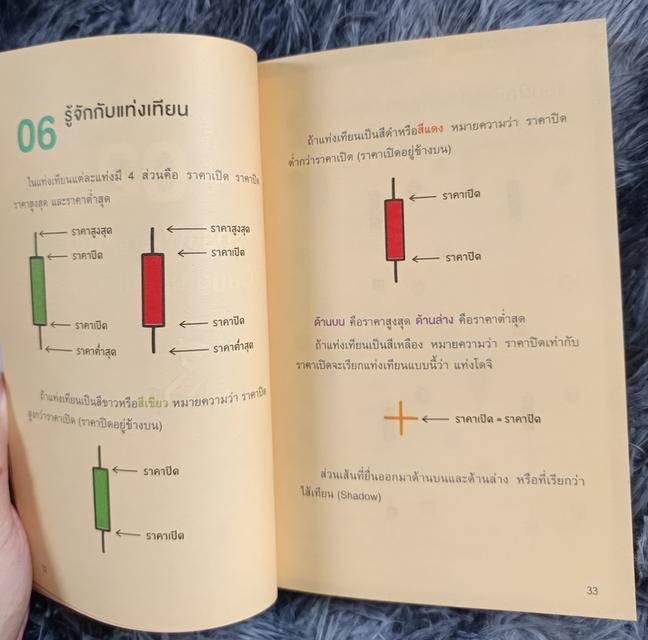 06 รู้จักกับแท่งเทียน
ในแท่งเทียนแต่ละแท่งมี 4 ส่วนคือ ราคาเปิด ราคาปิด
ราคาสูงสุด และราคาต่ำสุด
ราคาสูงสุด
ราคาปิด
ราคาเปิด
ราคาต่ำสุด
ราคาสูงสุด
ราคาเปิด
ราคาปิด
ราคาต่ำสุด
ถ้าแท่งเทียนเป็นสีขาวหรือสีเขียว หมายความว่า ราคาปิด
สูงกว่าราคาเปิด (ราคาปิดอยู่ข้างบน)
ราคาปิด
ราคาเปิด
ถ้าแท่งเทียนเป็นสีดำหรือสีแดง หมายความว่า ราคาปิด
ต่ำกว่าราคาเปิด (ราคาเปิดอยู่ข้างบน)
ราคาเปิด
ราคาปิด
ด้านบน คือราคาสูงสุด ด้านล่าง คือราคาต่ำสุด
ถ้าแท่งเทียนเป็นสีเหลือง หมายความว่า ราคาปิดเท่ากับ
ราคาเปิดจะเรียกแท่งเทียนแบบนี้ว่า แท่งโดจิ
ราคาเปิด = ราคาปิด
ส่วนเส้นที่ยื่นออกมาด้านบนและด้านล่าง หรือที่เรียกว่า
ไส้เทียน (Shadow)
33